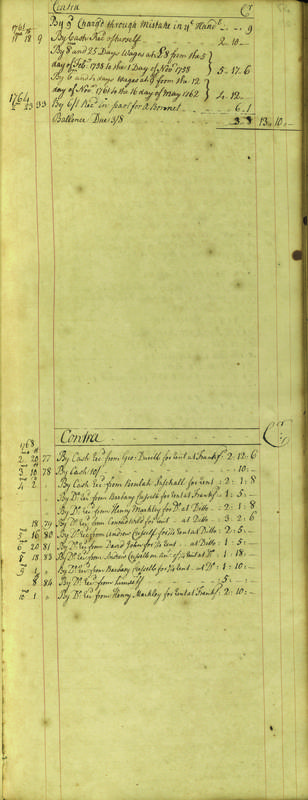 Contra Cr
1761
By 9 Charge through Mistake in ye Hand 9
18 9 By Cash Red of herself 2.10.-
By 8 and 25 Days Wages at £8 from the 5
day of Febr 1758 to the 1 Day of Novr 1758 5.17.6
By 6 and 4 days Wages at 8 from the 12
day of Novr 1761 to the 16 day of May 1762 4.12.-
1764
23 33 By 6/1 Red in part for a Bonnet 6.1
Ballance Due 3/8 3.8 13.10.-
Contra Cr
1768
2 20 77 By Cash Recd from Geo: Duvell for Rent at Frankfd 2.12.6
3 10 78 By Cash 10/ .10.-
4 2 By Cash Recd from Beulah Paschall for Rent 2.1.8
By Do Recd from Barbary Cassell for Rent at Frankfd 1.5.-
By Do Recd from Henry Markley for Do at Ditto 2.1.8
18 79 By Do Recd from Conrad for Rent at Ditto 3.2.6
16 80 By Do Recd from Andrew Cassell for Rent at Ditto 2.5.-
20 81 By Do Recd from David John for Rent at Ditto 1.5.-
18 83 By Do Recd from Andrew Cassell on Acct of Rent at Do 1.18.-
By Do Recd from Barbary Cassell for Rent at Do 1.10.-
8 84 By Do Recd from himself 5.-.-
10 1 By Do Recd from Henry Markley for Rent at Frankfd 2.10.-